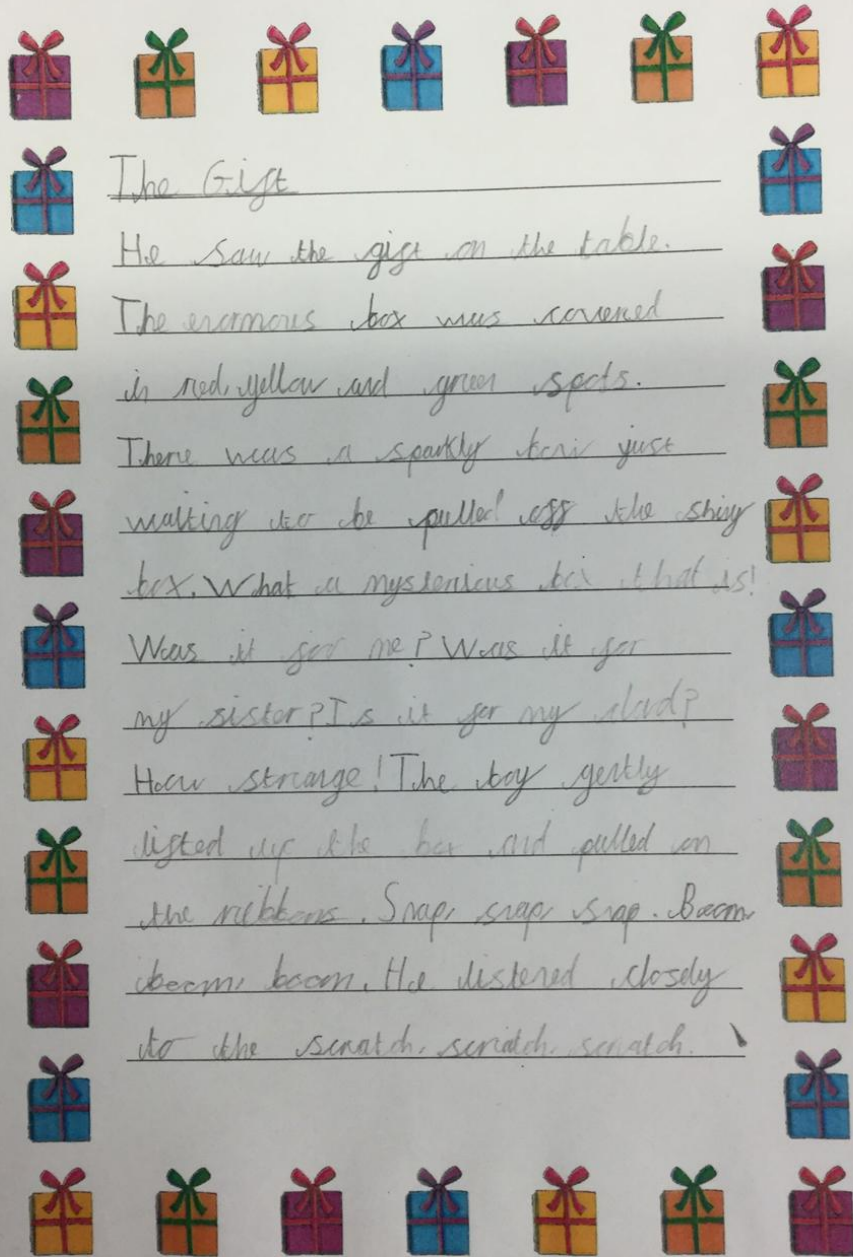 The Gift
He saw the gift on the table.
The enormous box was covered
in red, yellow and green spots.
There was a sparkly bow just
waiting to be pulled off the shiny
box. What a mysterious box that is!
Was it for me? Was it for
my sister? Is it for my dad?
How strange! The boy gently
lifted up the box and pulled on
the ribbons. Snap, snap, snap. Boom,
boom, boom. He listened closely
to the scratch, scratch, scratch.